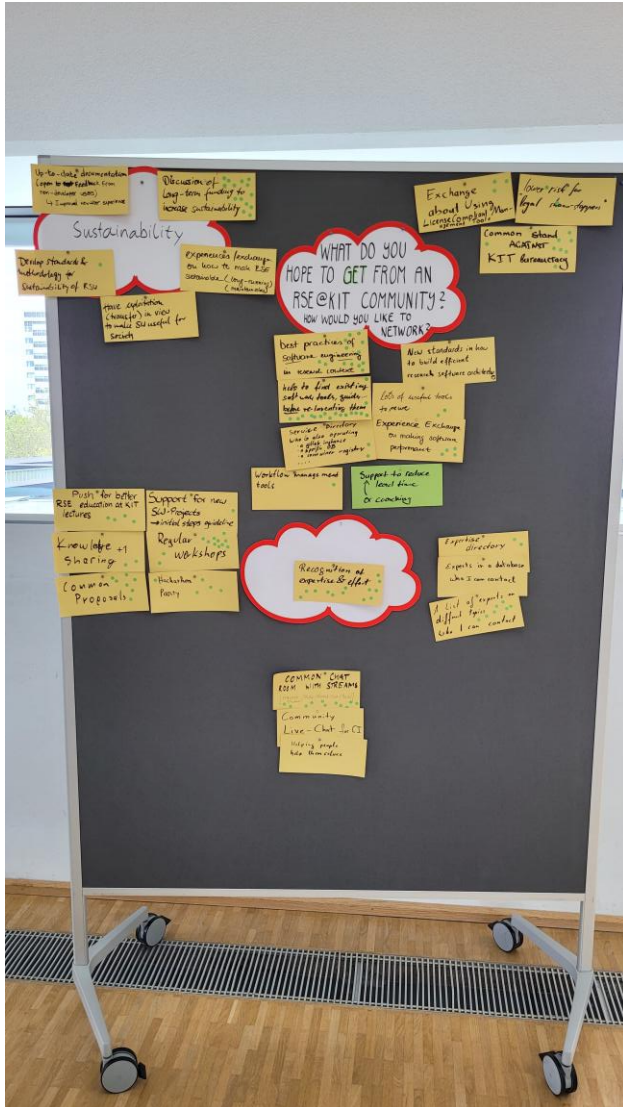 Up-to-date documentation
(open to feedback from
non-developer users)
↳ Improved newcomer experience
Discussion of
long-term funding to
increase sustainability
Sustainability
Develop standards &
methodology for
sustainability of RSW
experiences / exchange
on how to make RSE
sustainable (long-running)
(maintainable)
Have exploitation
(transfer) in view
to make SW useful for
society
Exchange
about Using
License Compliant / Man-
agement Tools
lower risk for
legal "show-stoppers"
Common Stand
AGAINST
KIT Bureaucracy
WHAT DO YOU
HOPE TO GET FROM AN
RSE@KIT COMMUNITY?
HOW WOULD YOU LIKE TO
NETWORK?
best practices of
software engineering
in research context
New standards in how
to build efficient
research software architecture
help to find existing
software, tools, guides
before re-inventing them
Lots of useful tools
to reuse
Service Directory
who is also operating
• gitlab instance
• container registry
....
Experience Exchange
on making software
performant
Workflow management
tools
Support to reduce
lead time
or coaching
Push for better
RSE education at KIT
lectures
Support for new
SW-Projects
→ initial steps guideline
Knowledge +1
Sharing
Regular
Workshops
Common
Proposals
Hackathon
Party
Recognition of
expertise & effort
Expertise
directory
Experts in a database
who I can contact
A List of experts on
different topics
who I can contact
COMMON CHAT
ROOM WITH STREAMS
Community
Live-Chat for CI
Helping people
help themselves